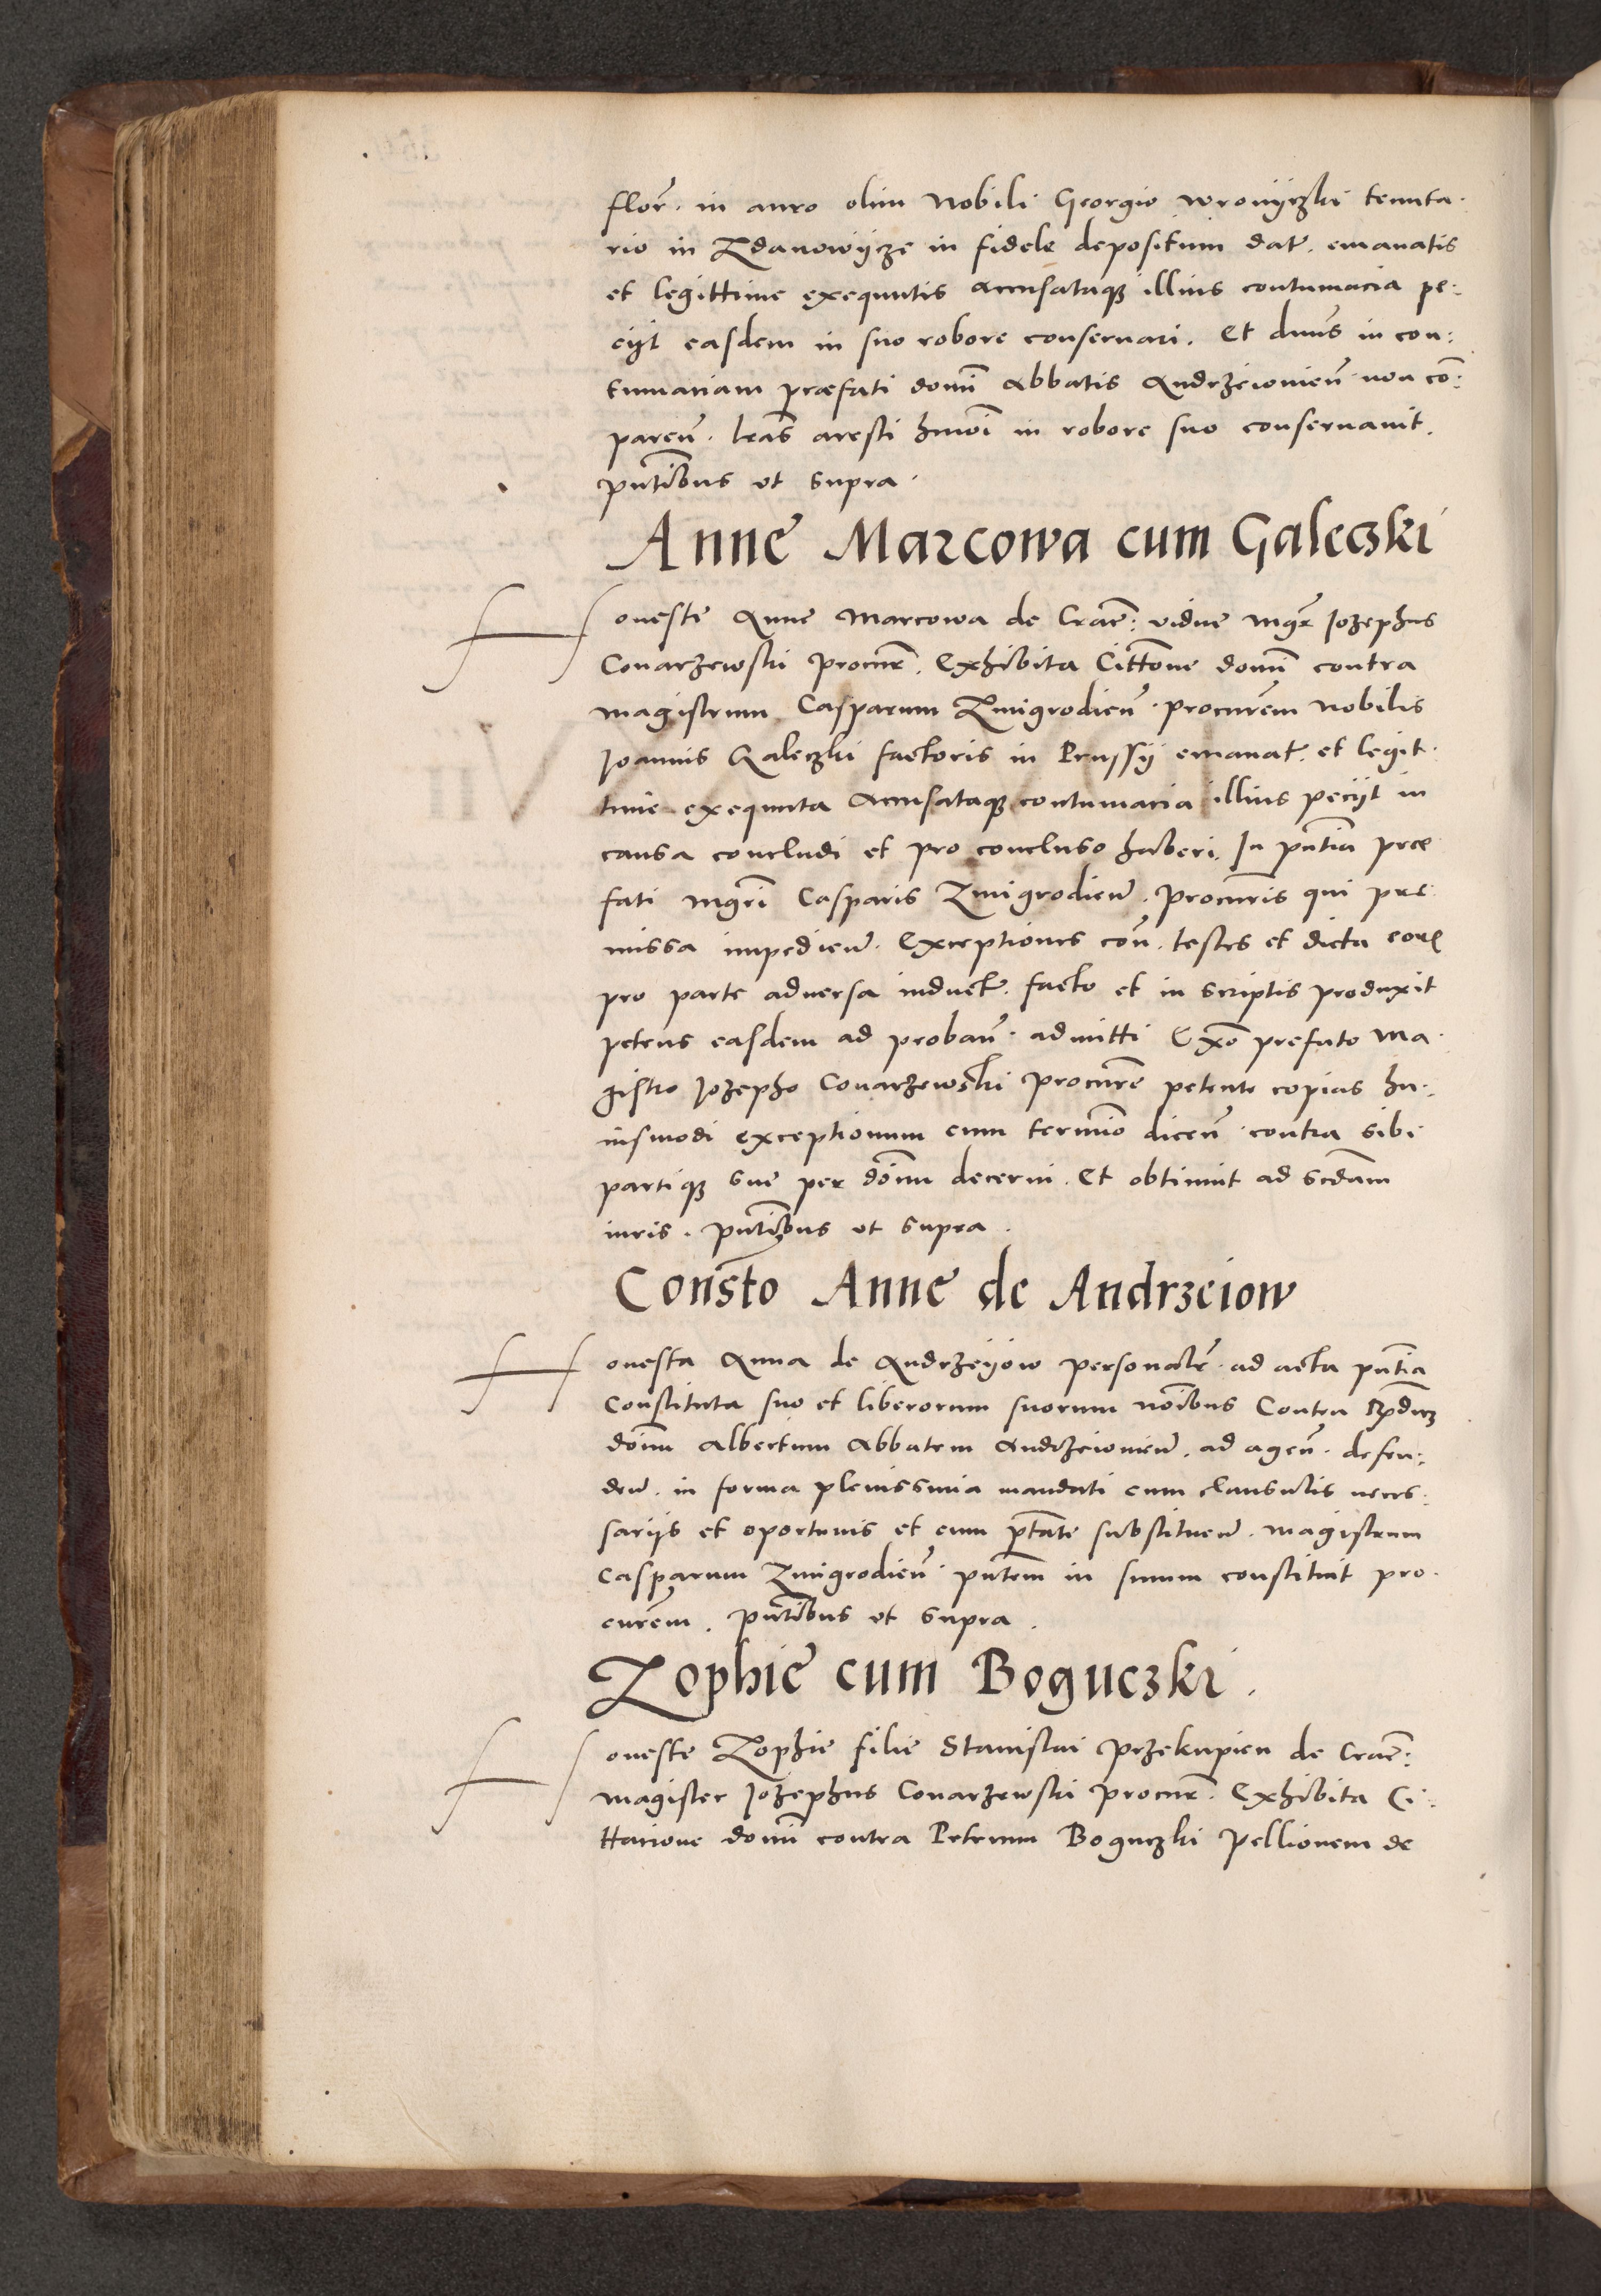 florē. in auro olim Nobili Georgio Wronijczki tenuta·
rio in Zdanowijcze in fidele depositum dat̄. emanatis
et legittime exequutis accusataqȝ illius contumacia pe:
ciit easdem in suo robore conservari. Et dnūs in con:
tumaciam præfati domī Abbatis Andrzeiovieñ. non cō:
pareñ. lrās aresti hmōi in robore suo conservavit.
pñtibus ut supra.
Anne Marcowa cum Galeczki
Honeste Anne Marcowa de Crac̄: vidue mgr̄ Jozephus
Conarzewski procur̄. Exhibita Cittōne domī contra
magistrum Casparum Zmigrodieñ. procurēm Nobilis
Joannis Galeczki factoris in Prussij emanat̄. et legit·
time exequuta Accusataqȝ contumacia illius peciit in
causa concludi et pro concluso haberi. In pñtia præ
fati mgrī Casparis Zmigrodieñ. procurīs qui pre
missa impedieñ. Exceptiones coñ. testes et dicta eorꝝ
pro parte adversa induct̄. facto et in scriptis produxit
petens easdem ad probañ. admitti Exō prefato Ma·
gistro Jozepho Conarzewski procurē petente copias hu·
iusmodi exceptionum cum termīo diceñ. contra sibi
partiqȝ sue per dōnm decerni. Et obtinuit ad scdām
iuris. pñtibus ut supra.
Consto Anne de Andrzeiow
Honesta Anna de Andrzeyow personalr̄. ad acta pñtia
Constituta suo et liberorum suorum noībus Contra Rp̄dum
dōnm Albertum Abbatem Andrzeiovieñ. ad ageñ. defen:
deñ. in forma plenissima mandati cum clausulis neces:
sariis et oportunis et cum ptāte substitueñ. Magistrum
Casparum Zmigrodieñ. pñtem in suum constituit pro·
curēm. pñtibus ut supra.
Zophie cum Boguczki.
Honeste Zophie filie Stanislai Przekupien de Crac̄:
magister Jozephus Conarzewski procur̄. Exhibita Ci:
ttatione domī contra Petrum Boguczki pellionem de